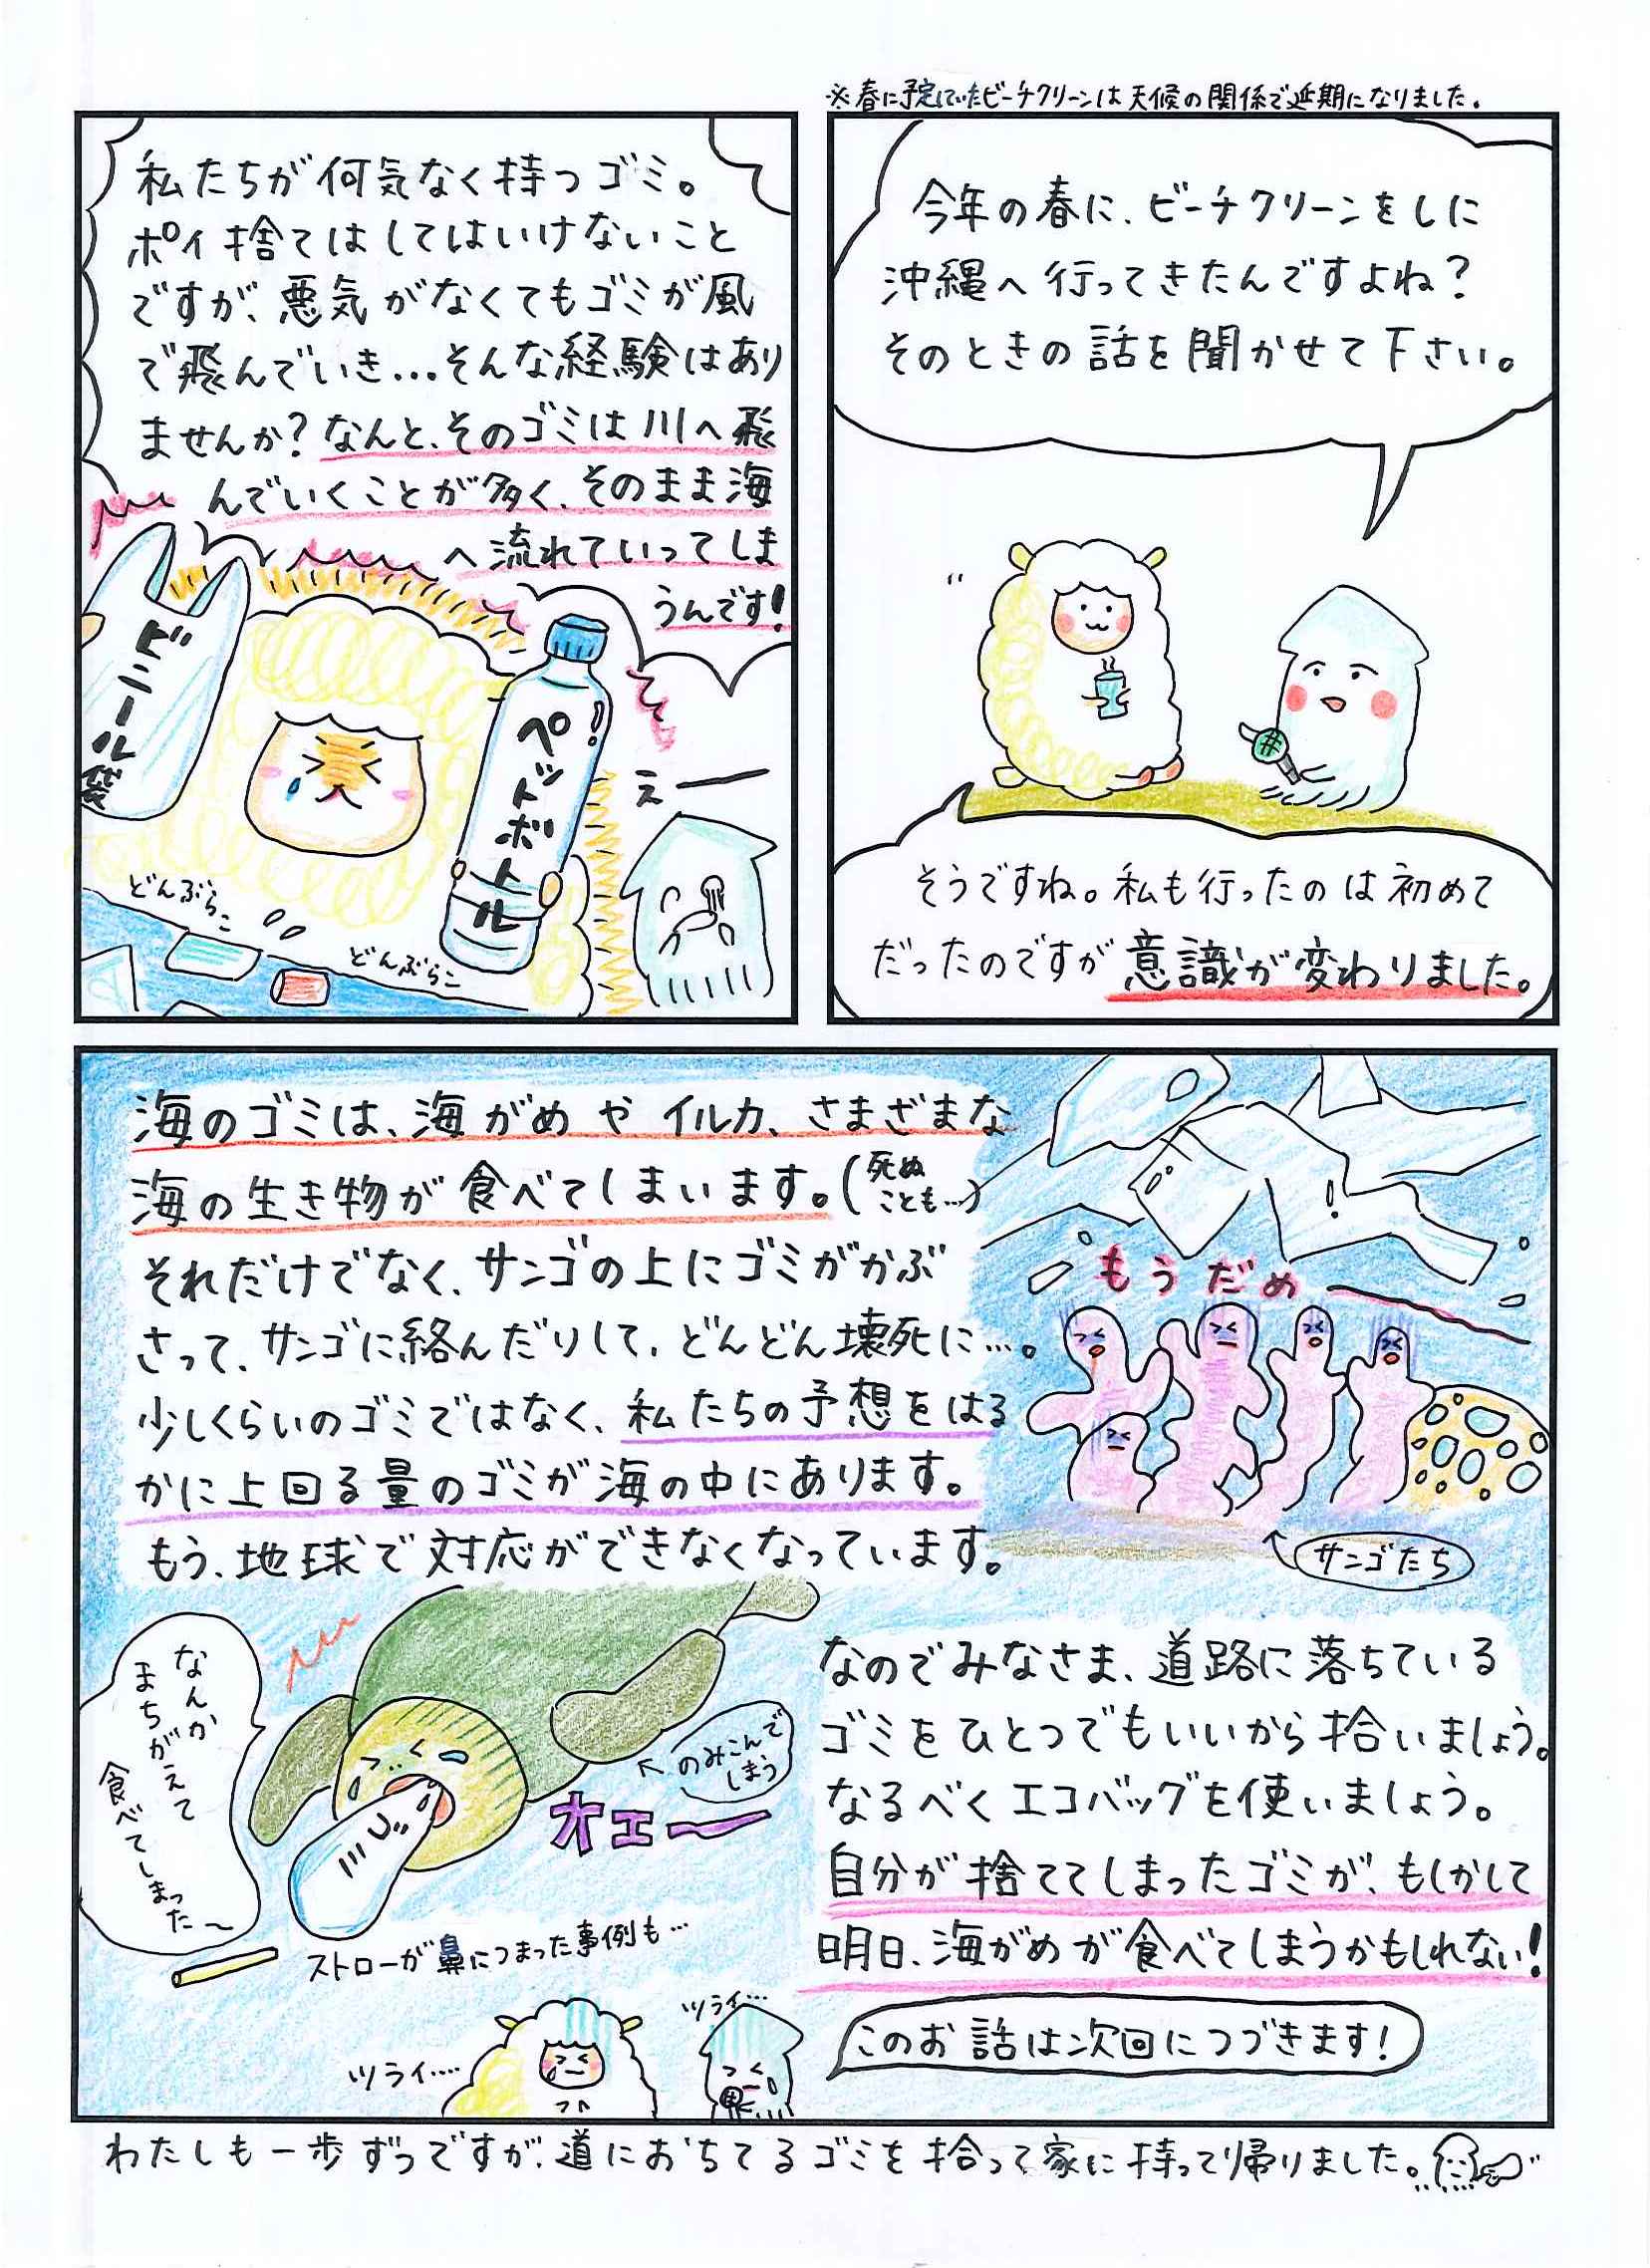 ※春に予定していたビーチクリーンは天候の関係で延期になりました。
今年の春に、ビーチクリーンをしに
沖縄へ行ってきたんですよね？
そのときの話を聞かせて下さい。
そうですね。私も行ったのは初めて
だったのですが意識が変わりました。
私たちが何気なく持つゴミ。
ポイ捨てはしてはいけないこと
ですが、悪気がなくてもゴミが風
で飛んでいき…そんな経験はあり
ませんか？なんと、そのゴミは川へ飛
んでいくことが多く、そのまま海
へ流れていってしま
うんです！
ビニール袋
ペットボトル
えー
どんぶらこ
どんぶらこ
海のゴミは、海がめやイルカ、さまざまな
海の生き物が食べてしまいます。（死ぬ
ことも…）
それだけでなく、サンゴの上にゴミがかぶ
さって、サンゴに絡んだりして、どんどん壊死に…。
少しくらいのゴミではなく、私たちの予想をはる
かに上回る量のゴミが海の中にあります。
もう、地球で対応ができなくなっています。
もうだめー
サンゴたち
なんか
まちがえて
食べてしまった～
のみこんで
しまう
オエー
ストローが鼻につまった事例も…
なのでみなさま、道路に落ちている
ゴミをひとつでもいいから拾いましょう。
なるべくエコバッグを使いましょう。
自分が捨ててしまったゴミが、もしかして
明日、海がめが食べてしまうかもしれない！
ツライ…
ツライ…
このお話は次回につづきます！
わたしも一歩ずつですが、道におちてるゴミを拾って家に持って帰りました。